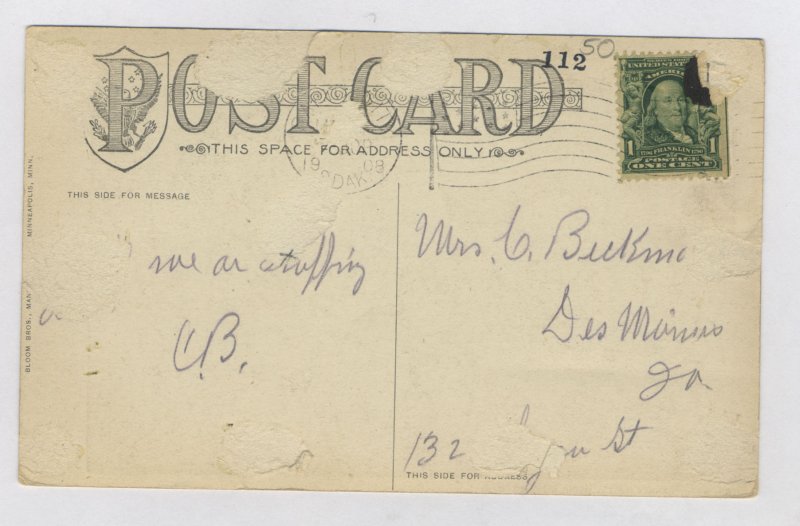 POST CARD
112
50
THIS SPACE FOR ADDRESS ONLY
19 08
DAK
UNITED STATES
AMERICA
1 FRANKLIN 1
POSTAGE
ONE CENT
THIS SIDE FOR MESSAGE
BLOOM BROS., MAN MINNEAPOLIS, MINN.
we are stopping
C.B.
Mrs. C. Beckm
Des Moines
Ia
132 St
THIS SIDE FOR ADDRESS